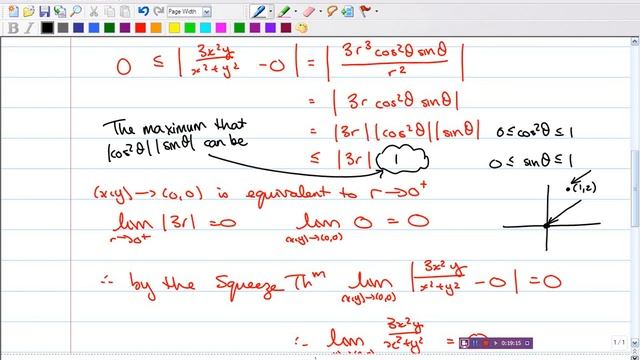 Page Width
B I
0 ≤ | 3x²y / x²+y² - 0 | = | 3r³cos²θ sinθ / r² |
= | 3r cos²θ sinθ |
The maximum that
|cos²θ| |sinθ| can be
= |3r| |cos²θ| |sinθ|
0 ≤ cos²θ ≤ 1
≤ |3r| 1
0 ≤ sinθ ≤ 1
(x,y) → (0,0) is equivalent to r → 0⁺
(1,2)
lim r→0⁺ |3r| = 0
lim (x,y)→(0,0) 0 = 0
∴ by the Squeeze Thᵐ lim (x,y)→(0,0) | 3x²y / x²+y² - 0 | = 0
∴ lim 3x²y / x²+y² =
0:19:15
1/1